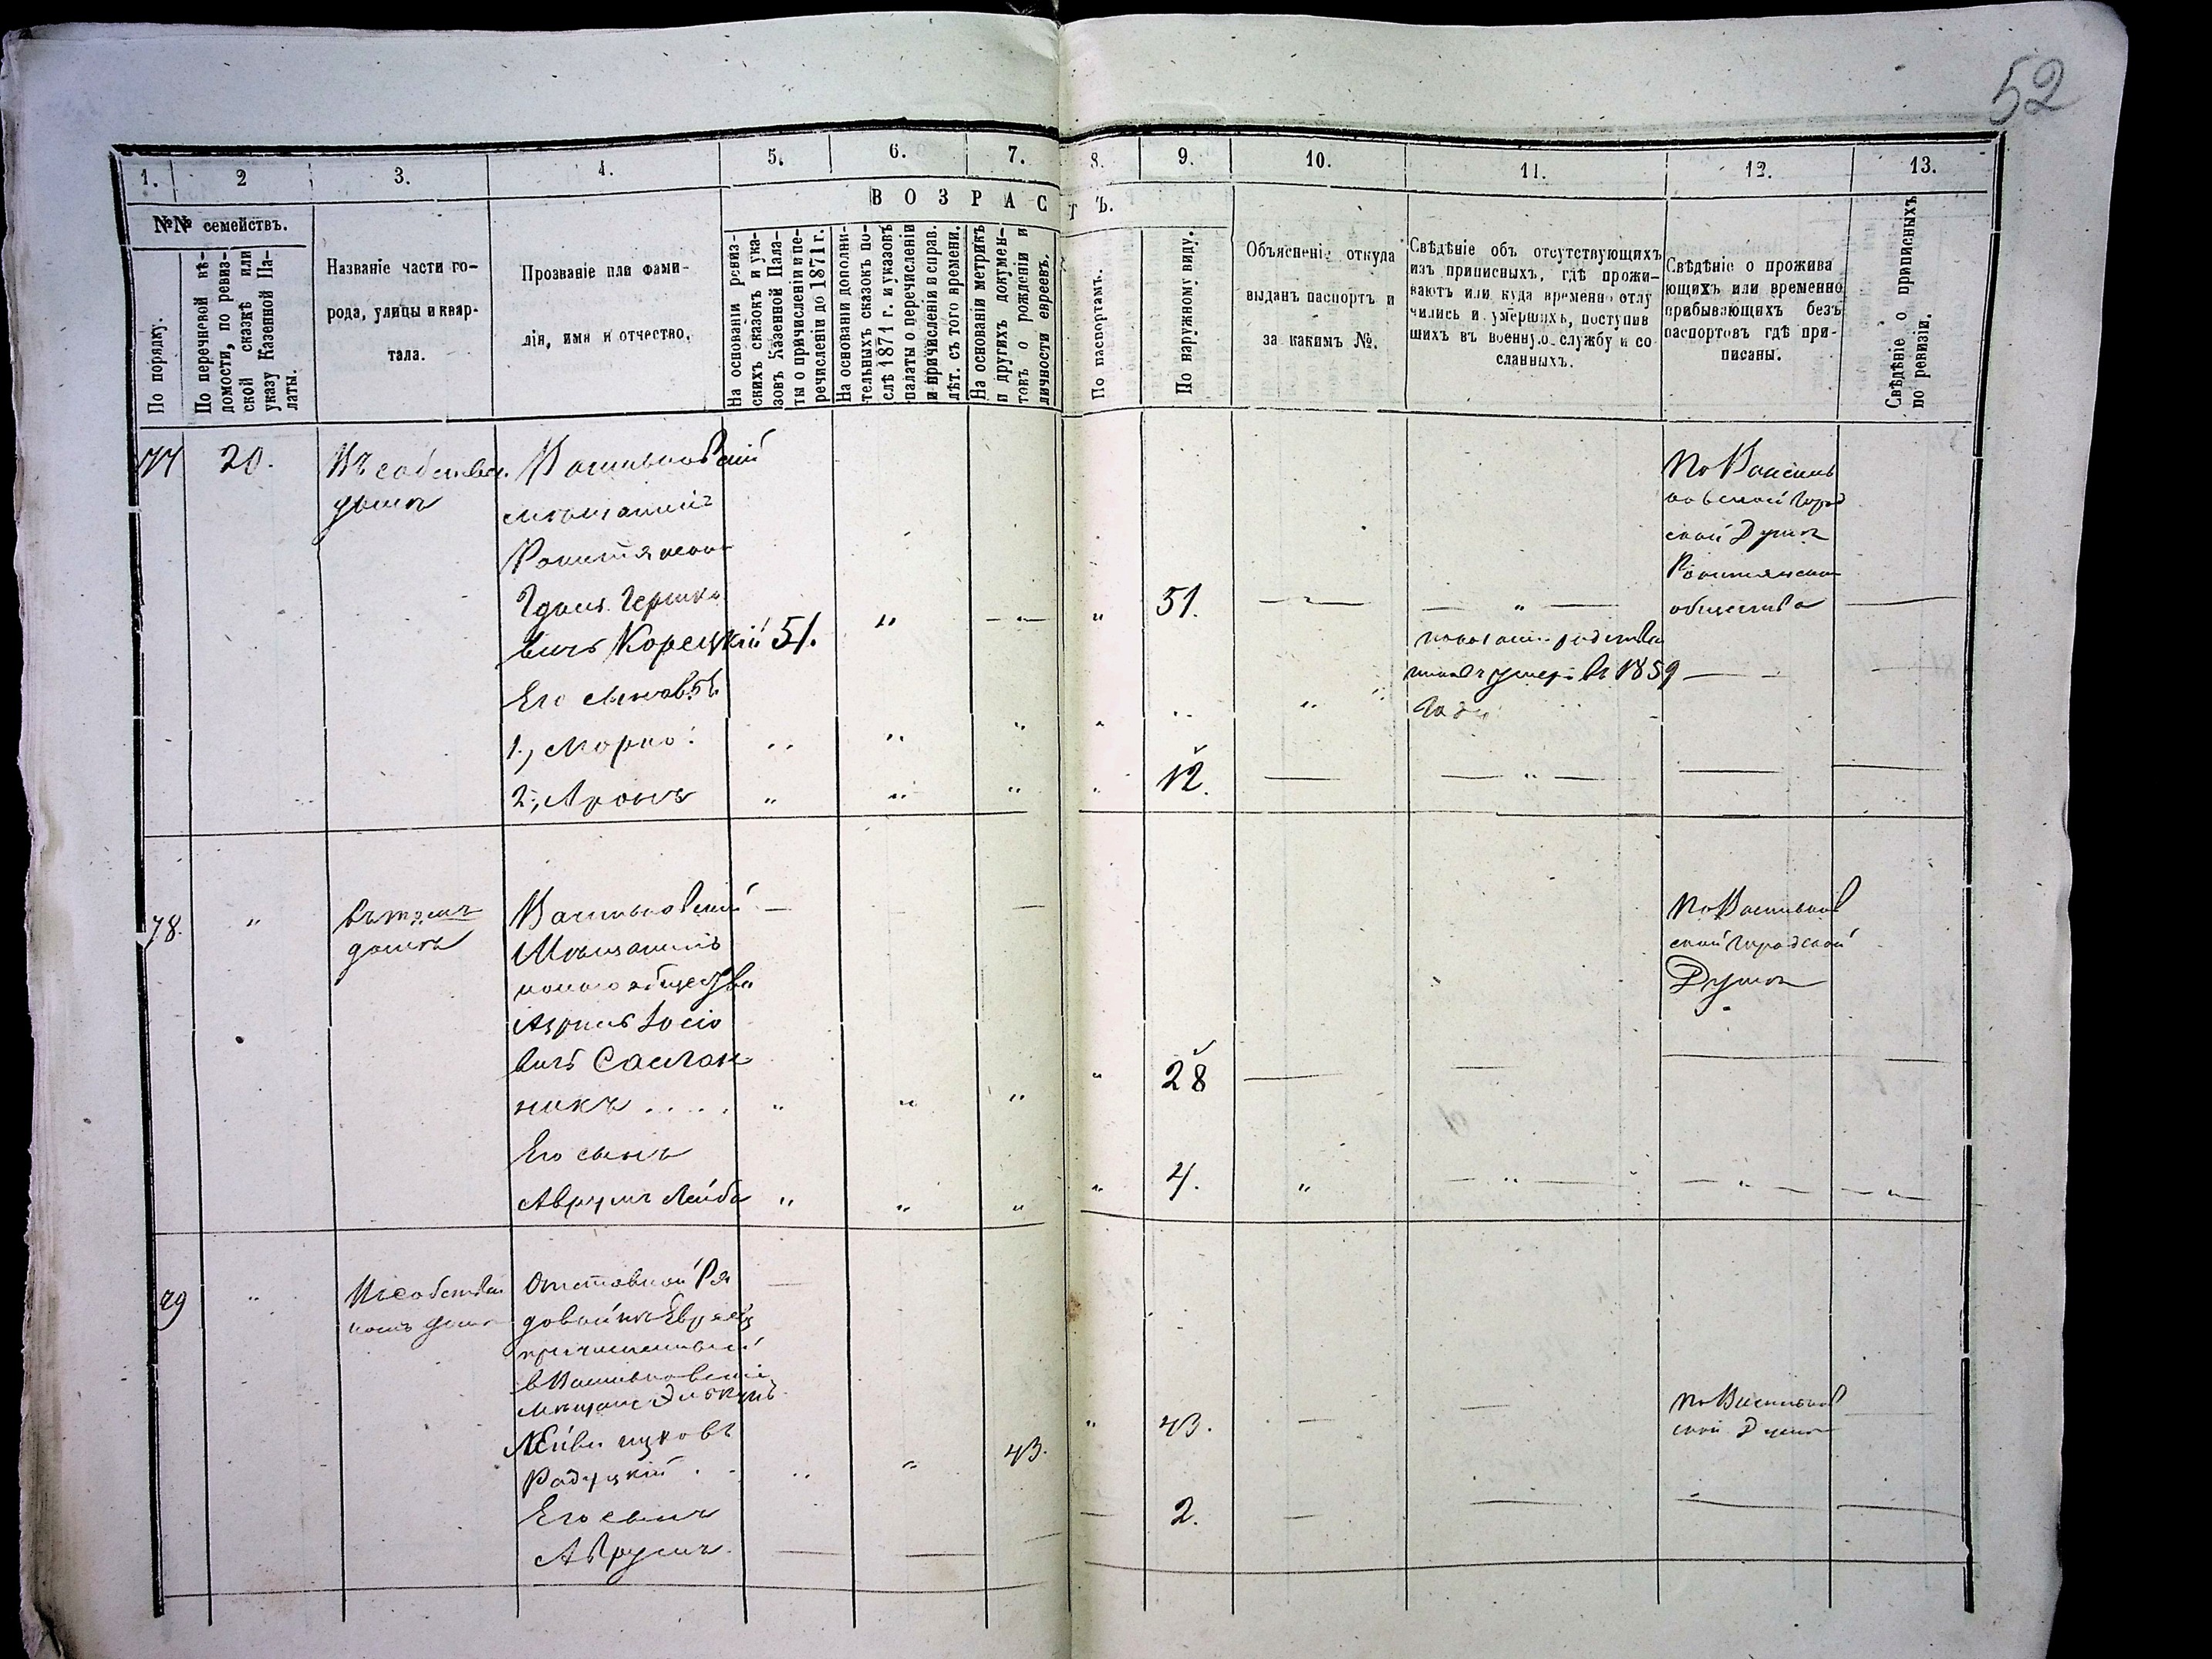 52
1. 2 3. 4. 5. 6. 7. 8. 9. 10. 11. 12. 13.
В О З Р А С Т Ъ.
№№ семействъ.
По порядку.
По перечневой вѣ-
домости, по ревиз-
ской сказкѣ или
указу Казенной Па-
латы.
Названіе части го-
рода, улицы и квар-
тала.
Прозваніе или фами-
лія, имя и отчество.
На основаніи ревиз-
скихъ сказокъ и ука-
зовъ Казенной Пала-
ты о причисленіи и пе-
речисленіи до 1871 г.
На основаніи дополни-
тельныхъ сказокъ по-
слѣ 1871 г. и указовъ
палаты о перечисленіи
и причисленіи в справ.
лѣт. съ того времени.
На основаніи метрикъ
и другихъ докумен-
товъ о рожденіи и
личности евреевъ.
По паспортамъ.
По наружному виду.
Объясненіе откуда
выданъ паспортъ и
за какимъ №.
Свѣдѣніе объ отсутствующихъ
изъ приписныхъ, гдѣ прожи-
ваютъ или куда временно отлу
чились и умершихъ, поступив
шихъ въ военную службу и со
сланныхъ.
Свѣдѣніе о прожива
ющихъ или временно
прибывающихъ безъ
паспортовъ гдѣ при-
писаны.
Свѣдѣніе о приписныхъ
по ревизіи.
77 20. Въ собствен.
домѣ
Васильковскій
мѣщанинъ
Гершко
вичъ Корецкій 51. " — " — " 51. — " —
Его сыновья
1., Морко " " " " "
2., Аронъ " " " " 12. — " —
умеръ въ 1859
году
По Василь
ковской Город
ской Думѣ
общества
78. " въ томъ
домѣ
Васильковскій
Мѣщанинъ
общества
Іосіо
вичъ Саслав
никъ . . . . " " " " 28
Его сынъ
Аврумъ Лейба " " " " 4. " — " — — " — — " —
По Васильков
ской Городской
Думѣ
79 " Въ собствен
номъ домѣ
Отставной Ря
довой изъ Евреевъ
причисленный
в Васильковскіе
мѣщане
Радуцкій . . " " 43. " 43.
Его сынъ
Аврумъ. 2.
По Васильков
ской Думѣ